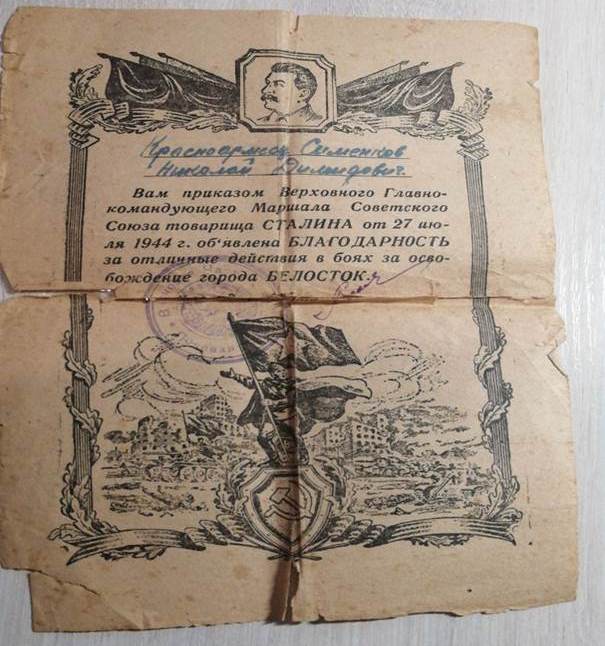 Красноармеец Сименков
Николай Дилидович.
Вам приказом Верховного Главно-
командующего Маршала Советского
Союза товарища СТАЛИНА от 27 ию-
ля 1944 г. об'явлена БЛАГОДАРНОСТЬ
за отличные действия в боях за осво-
бождение города БЕЛОСТОК.